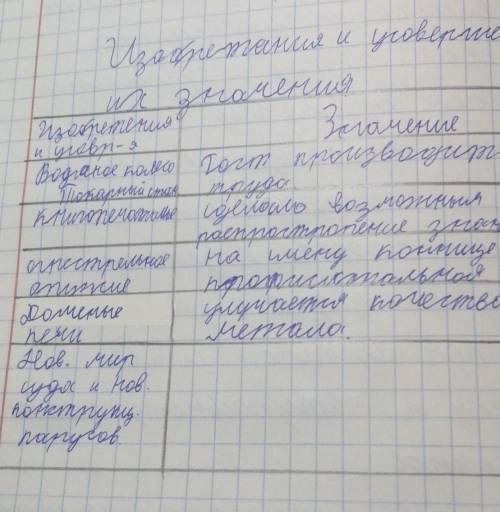 Изобретания и усоверше
их значения
Изобретения
и усовр-я
Значение
Водяное колесо
Токарный стан
Рост производит
труда.
книгопечатанье
сделало возможным
распространение знан
огнестрельное
оружие
на смену коннице
профисиональная
Доменые
печи
улучается качество
метала.
Нов. мир
суда и нов.
конструкц.
парусов